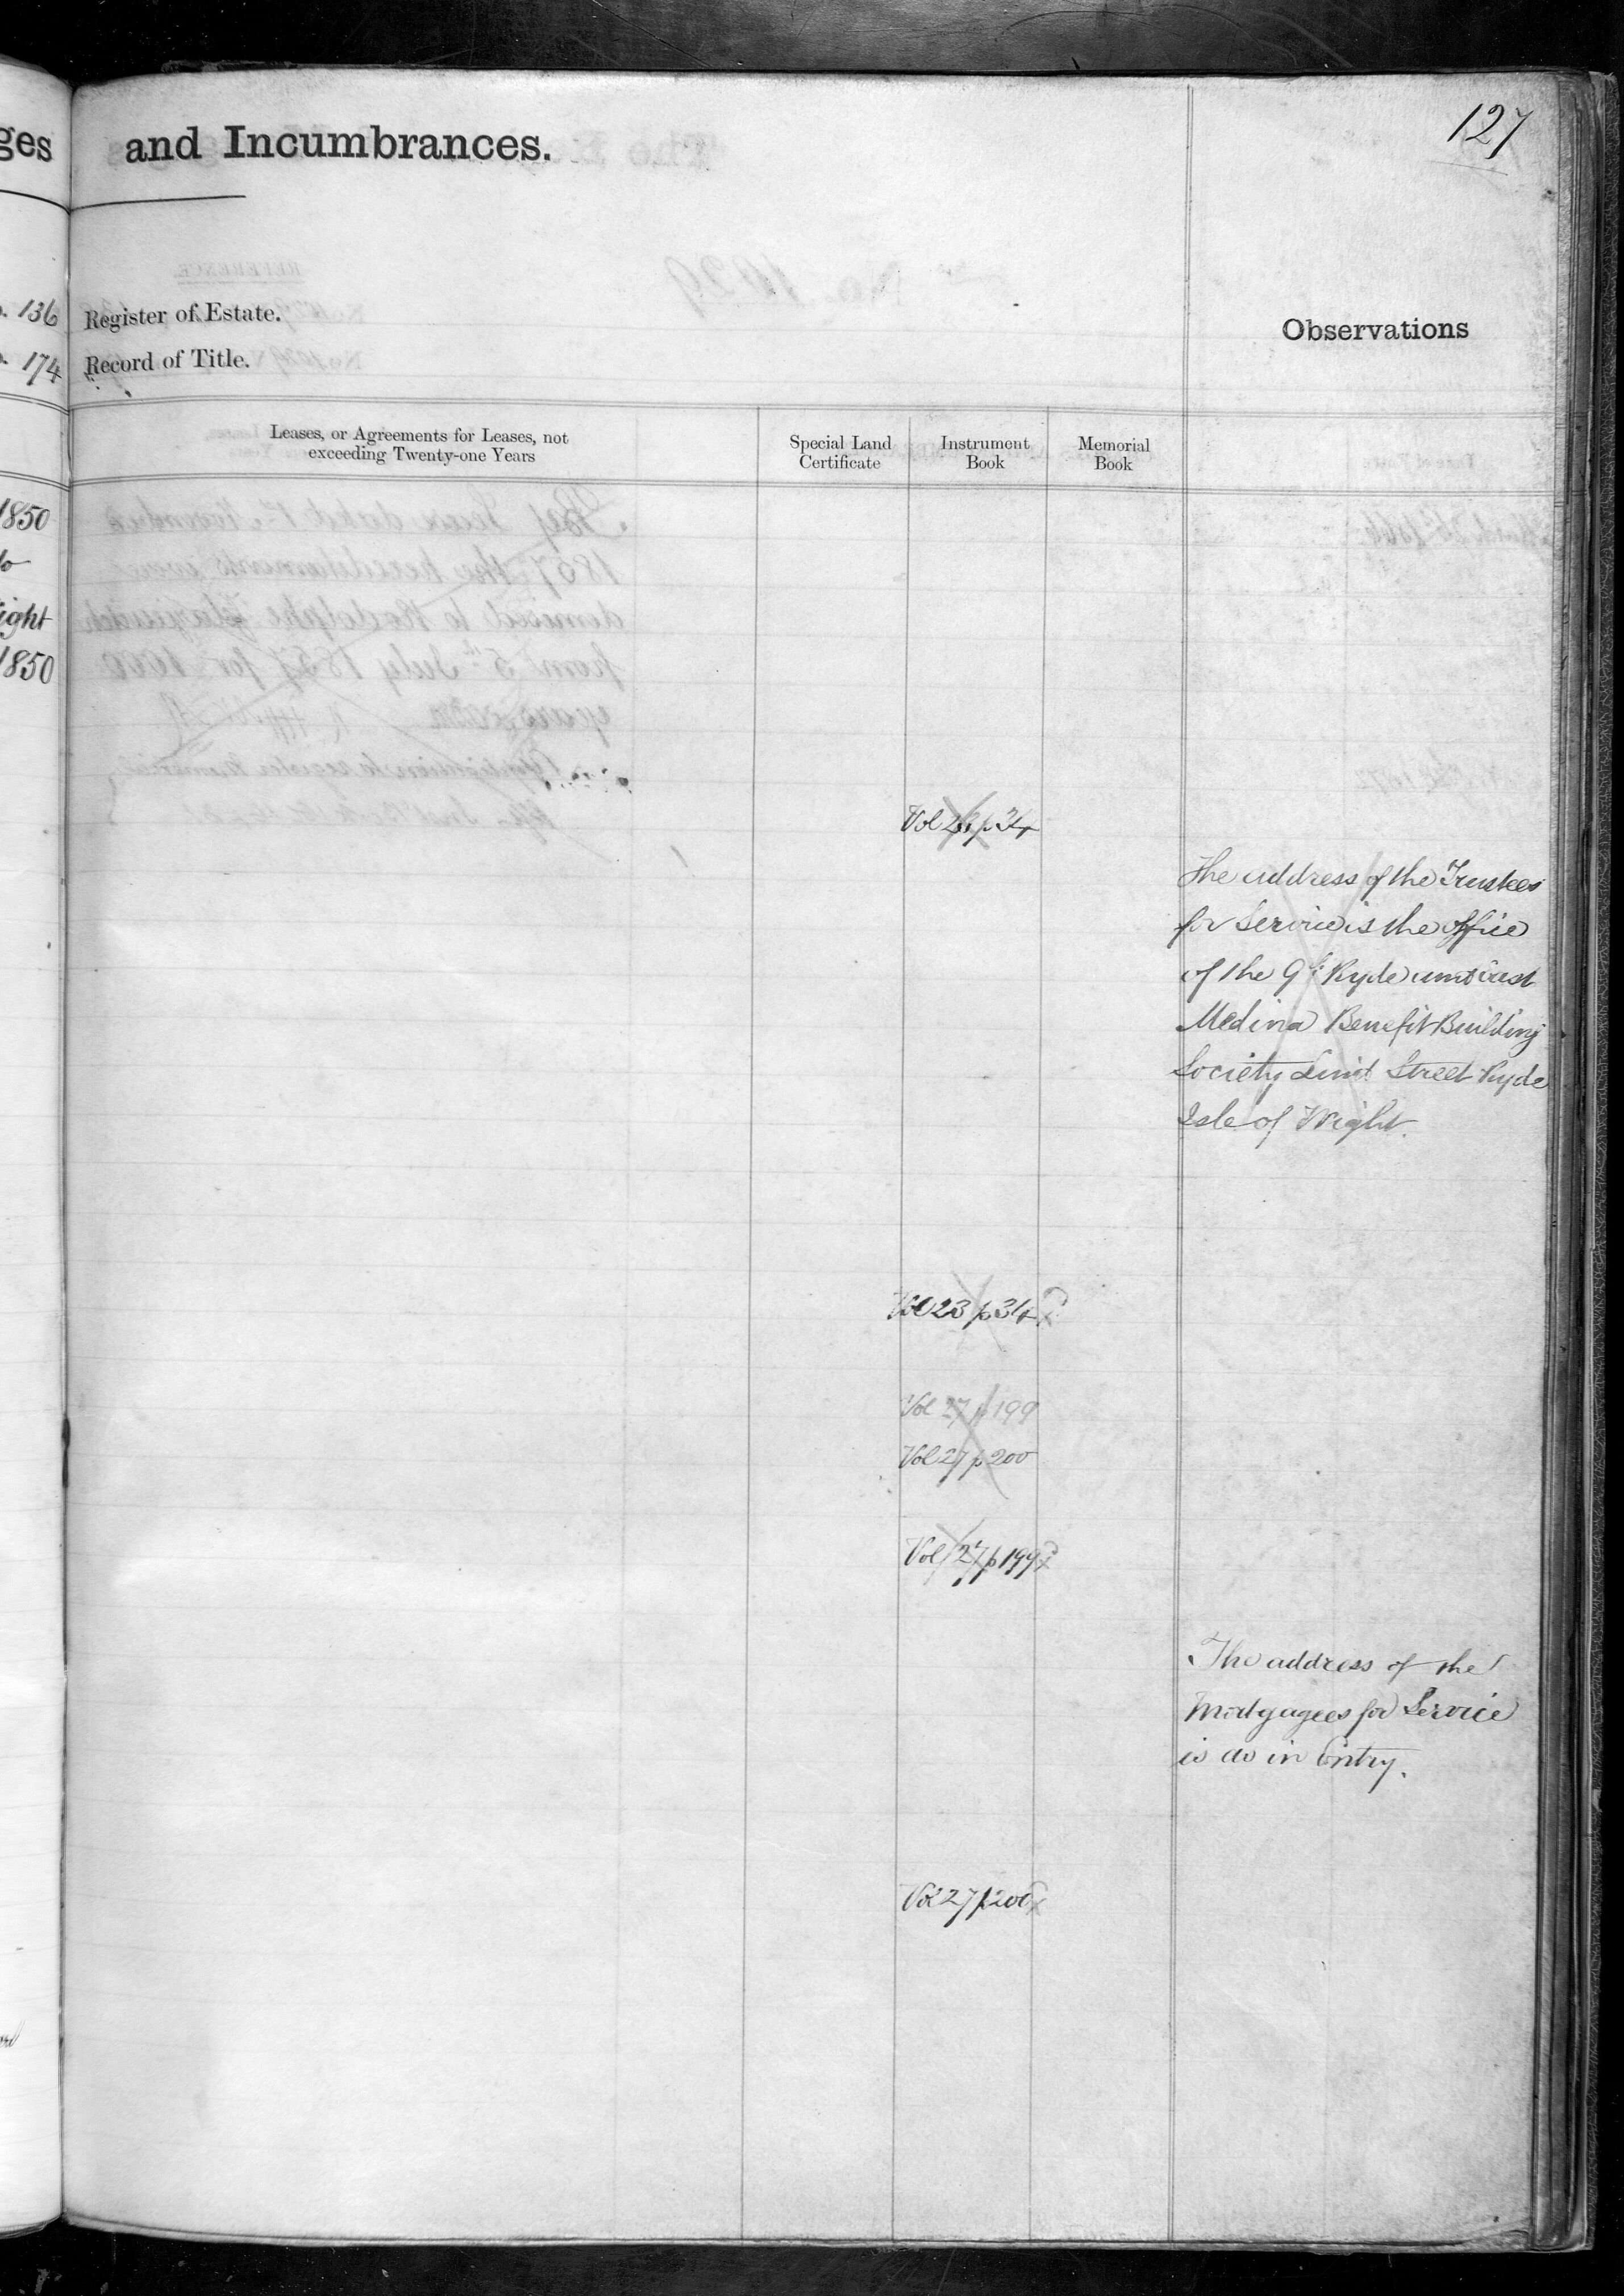 ges
and Incumbrances.
127
136
Register of Estate.
174
Record of Title.
Observations
Leases, or Agreements for Leases, not
exceeding Twenty-one Years
Special Land
Certificate
Instrument
Book
Memorial
Book
1850
to
ight
1850
Vol 23 p 34
The address of the Trustees
for Service is the office
of the 9th Ryde and East
Medina Benefit Building
Society Lind Street Ryde
Isle of Wight.
Vol 23 p 34
Vol 27 p 199
Vol 27 p 200
Vol 27 p 199
The address of the
Mortgagees for Service
is as in Entry.
Vol 27 p 200